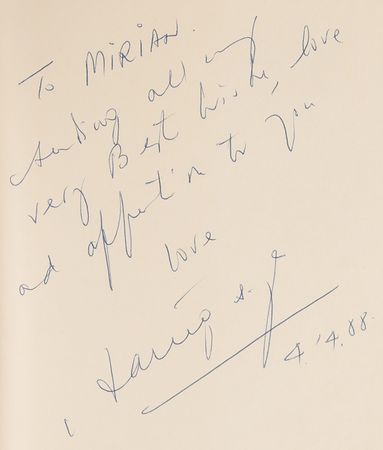 To MIRIAN.
sending all my
very Best wishe, love
ad affection to you
love
4.'4.88.